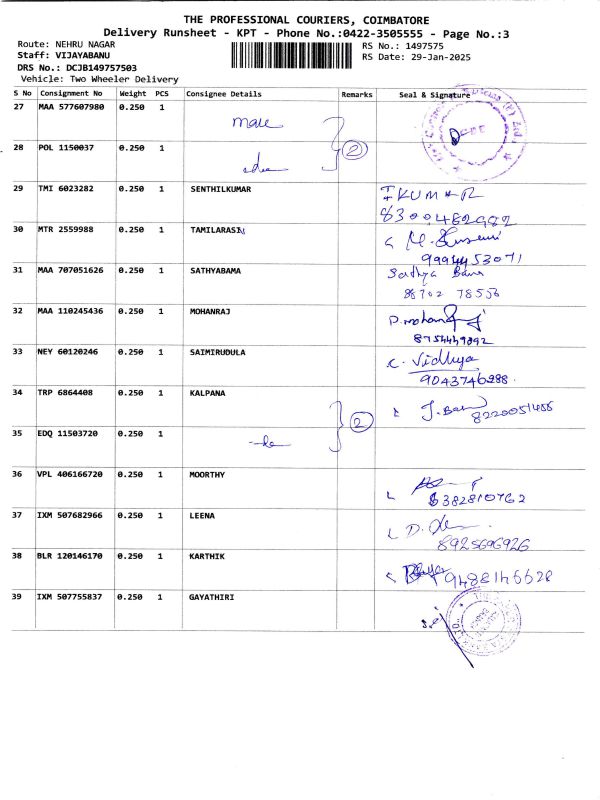 THE PROFESSIONAL COURIERS, COIMBATORE
Delivery Runsheet - KPT - Phone No.:0422-3505555 - Page No.:3
Route: NEHRU NAGAR
RS No.: 1497575
Staff: VIJAYABANU
RS Date: 29-Jan-2025
DRS No.: DCJB149757503
Vehicle: Two Wheeler Delivery
S No Consignment No Weight PCS Consignee Details Remarks Seal & Signature
27 MAA 577607980 0.250 1
2
28 POL 1150037 0.250 1
29 TMI 6023282 0.250 1 SENTHILKUMAR
8300482982
30 MTR 2559988 0.250 1 TAMILARASI
9994453071
31 MAA 707051626 0.250 1 SATHYABAMA Sathya Bama
88702 78556
32 MAA 110245436 0.250 1 MOHANRAJ P.mohanraj
8754449892
33 NEY 60120246 0.250 1 SAIMIRUDULA C. Vidhya
9043746288
34 TRP 6864408 0.250 1 KALPANA
2 8220051455
35 EDQ 11503720 0.250 1
36 VPL 406166720 0.250 1 MOORTHY
8382810762
37 IXM 507682966 0.250 1 LEENA
8925696926
38 BLR 120146170 0.250 1 KARTHIK 9488146628
39 IXM 507755837 0.250 1 GAYATHIRI